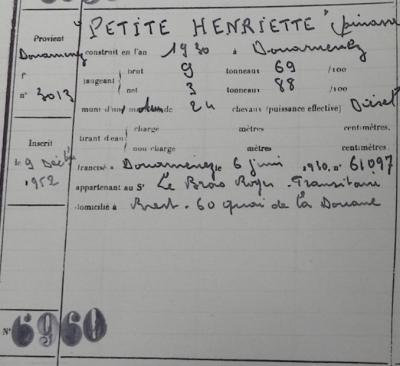 "PETITE HENRIETTE" pinasse
Provient
Douarnenez construit en l'an 1930 à Douarnenez
jaugeant brut 9 tonneaux 69 /100
f°
n° 3013 net 3 tonneaux 88 /100
muni d'un moteur de 24 chevaux (puissance effective) Diesel
tirant d'eau charge mètres centimètres.
non charge mètres centimètres.
Inscrit
le 9 Décbre francisé à Douarnenez le 6 juin 1930, n° 61097
1952 appartenant au Sr Le Bras Roger - Transitaire
domicilié à Brest - 60 quai de la Douane
N° 6960